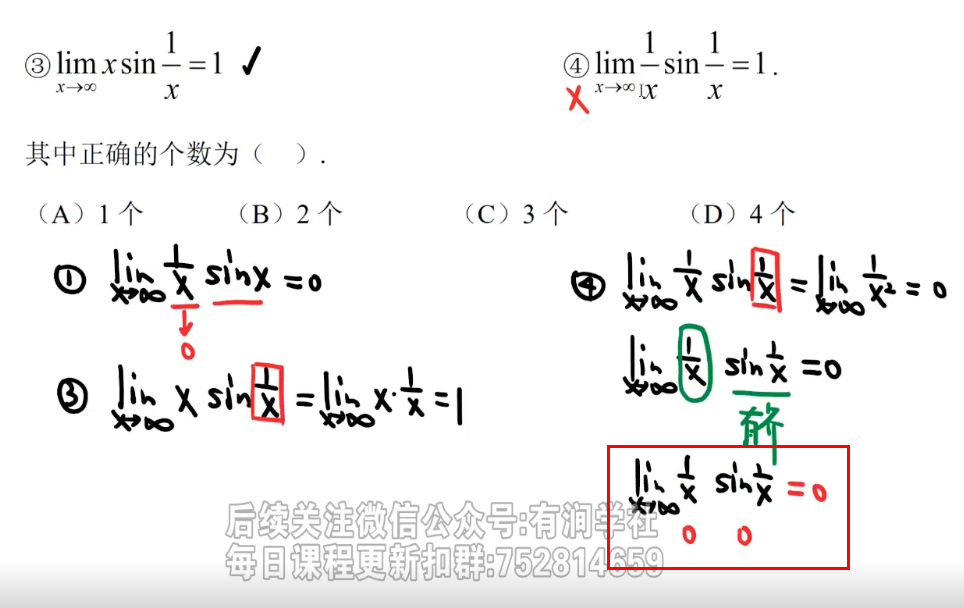 ③ lim x→∞ x sin 1/x = 1 ✓
④ lim x→∞ 1/x sin 1/x = 1.
×
其中正确的个数为（ ）.
（A）1 个 （B）2 个 （C）3 个 （D）4 个
① lim x→∞ 1/x sinx = 0
↓
0
③ lim x→∞ x sin 1/x = lim x→∞ x· 1/x = 1
④ lim x→∞ 1/x sin 1/x = lim x→∞ 1/x² = 0
lim x→∞ 1/x sin 1/x = 0
有界
lim x→∞ 1/x sin 1/x = 0
0 0
后续关注微信公众号:有润学社
每日课程更新扣群:752814659